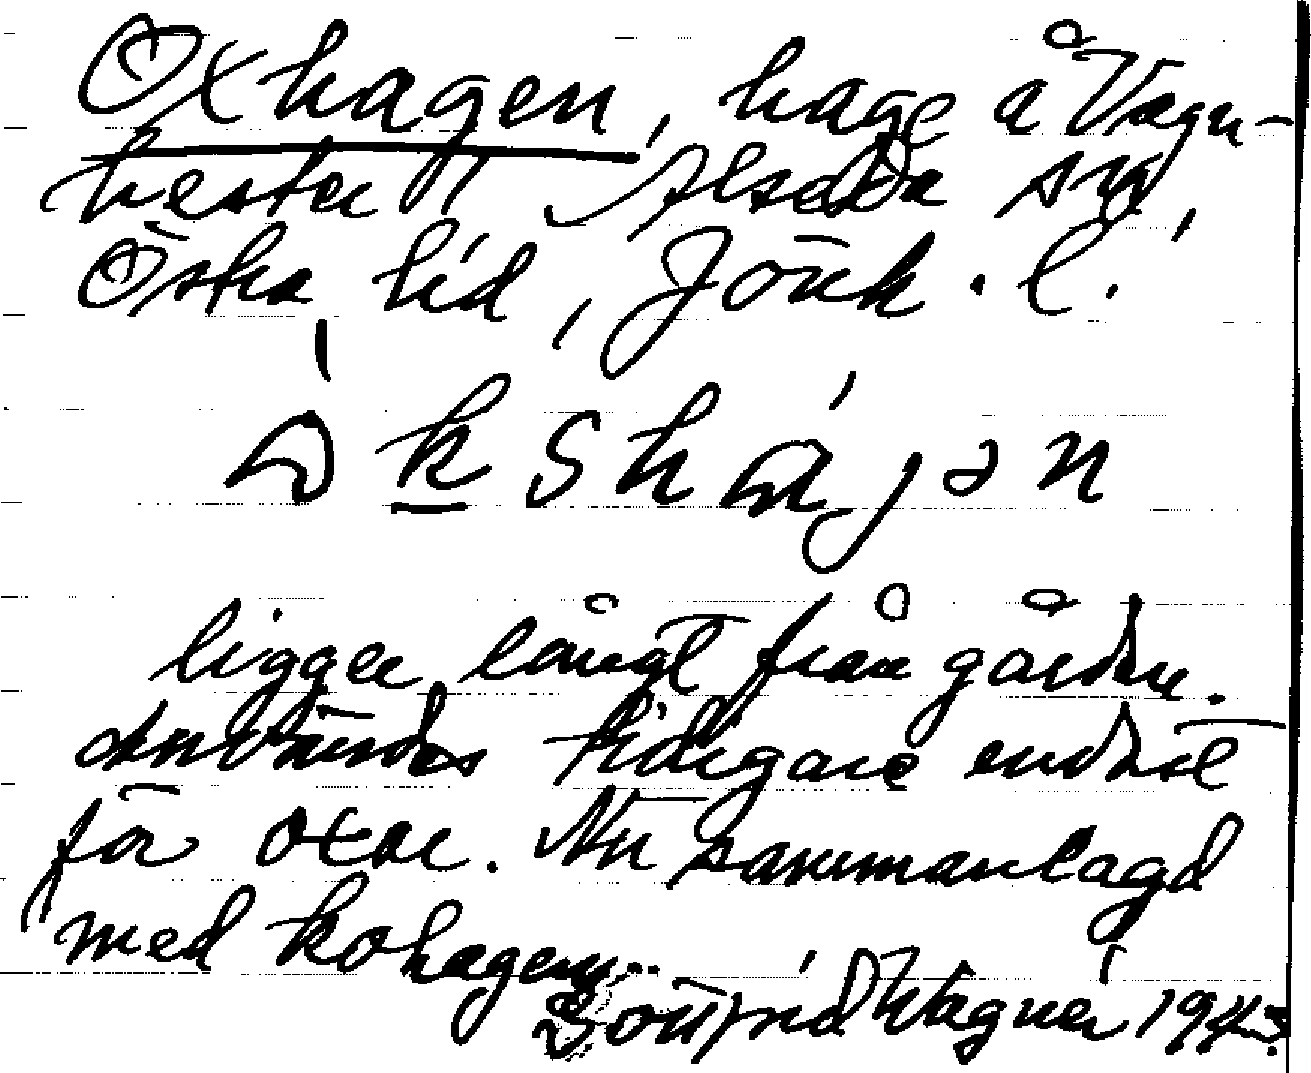 Oxhagen, hage å Vagn-
hester, Alseda sn,
Östra hd, Jönk. l.
ɷkshɷ́jən
ligger långt från gården.
Användes tidigare endast
för oxar. Nu sammanlagd
med kohagen.
Wagner 1943.